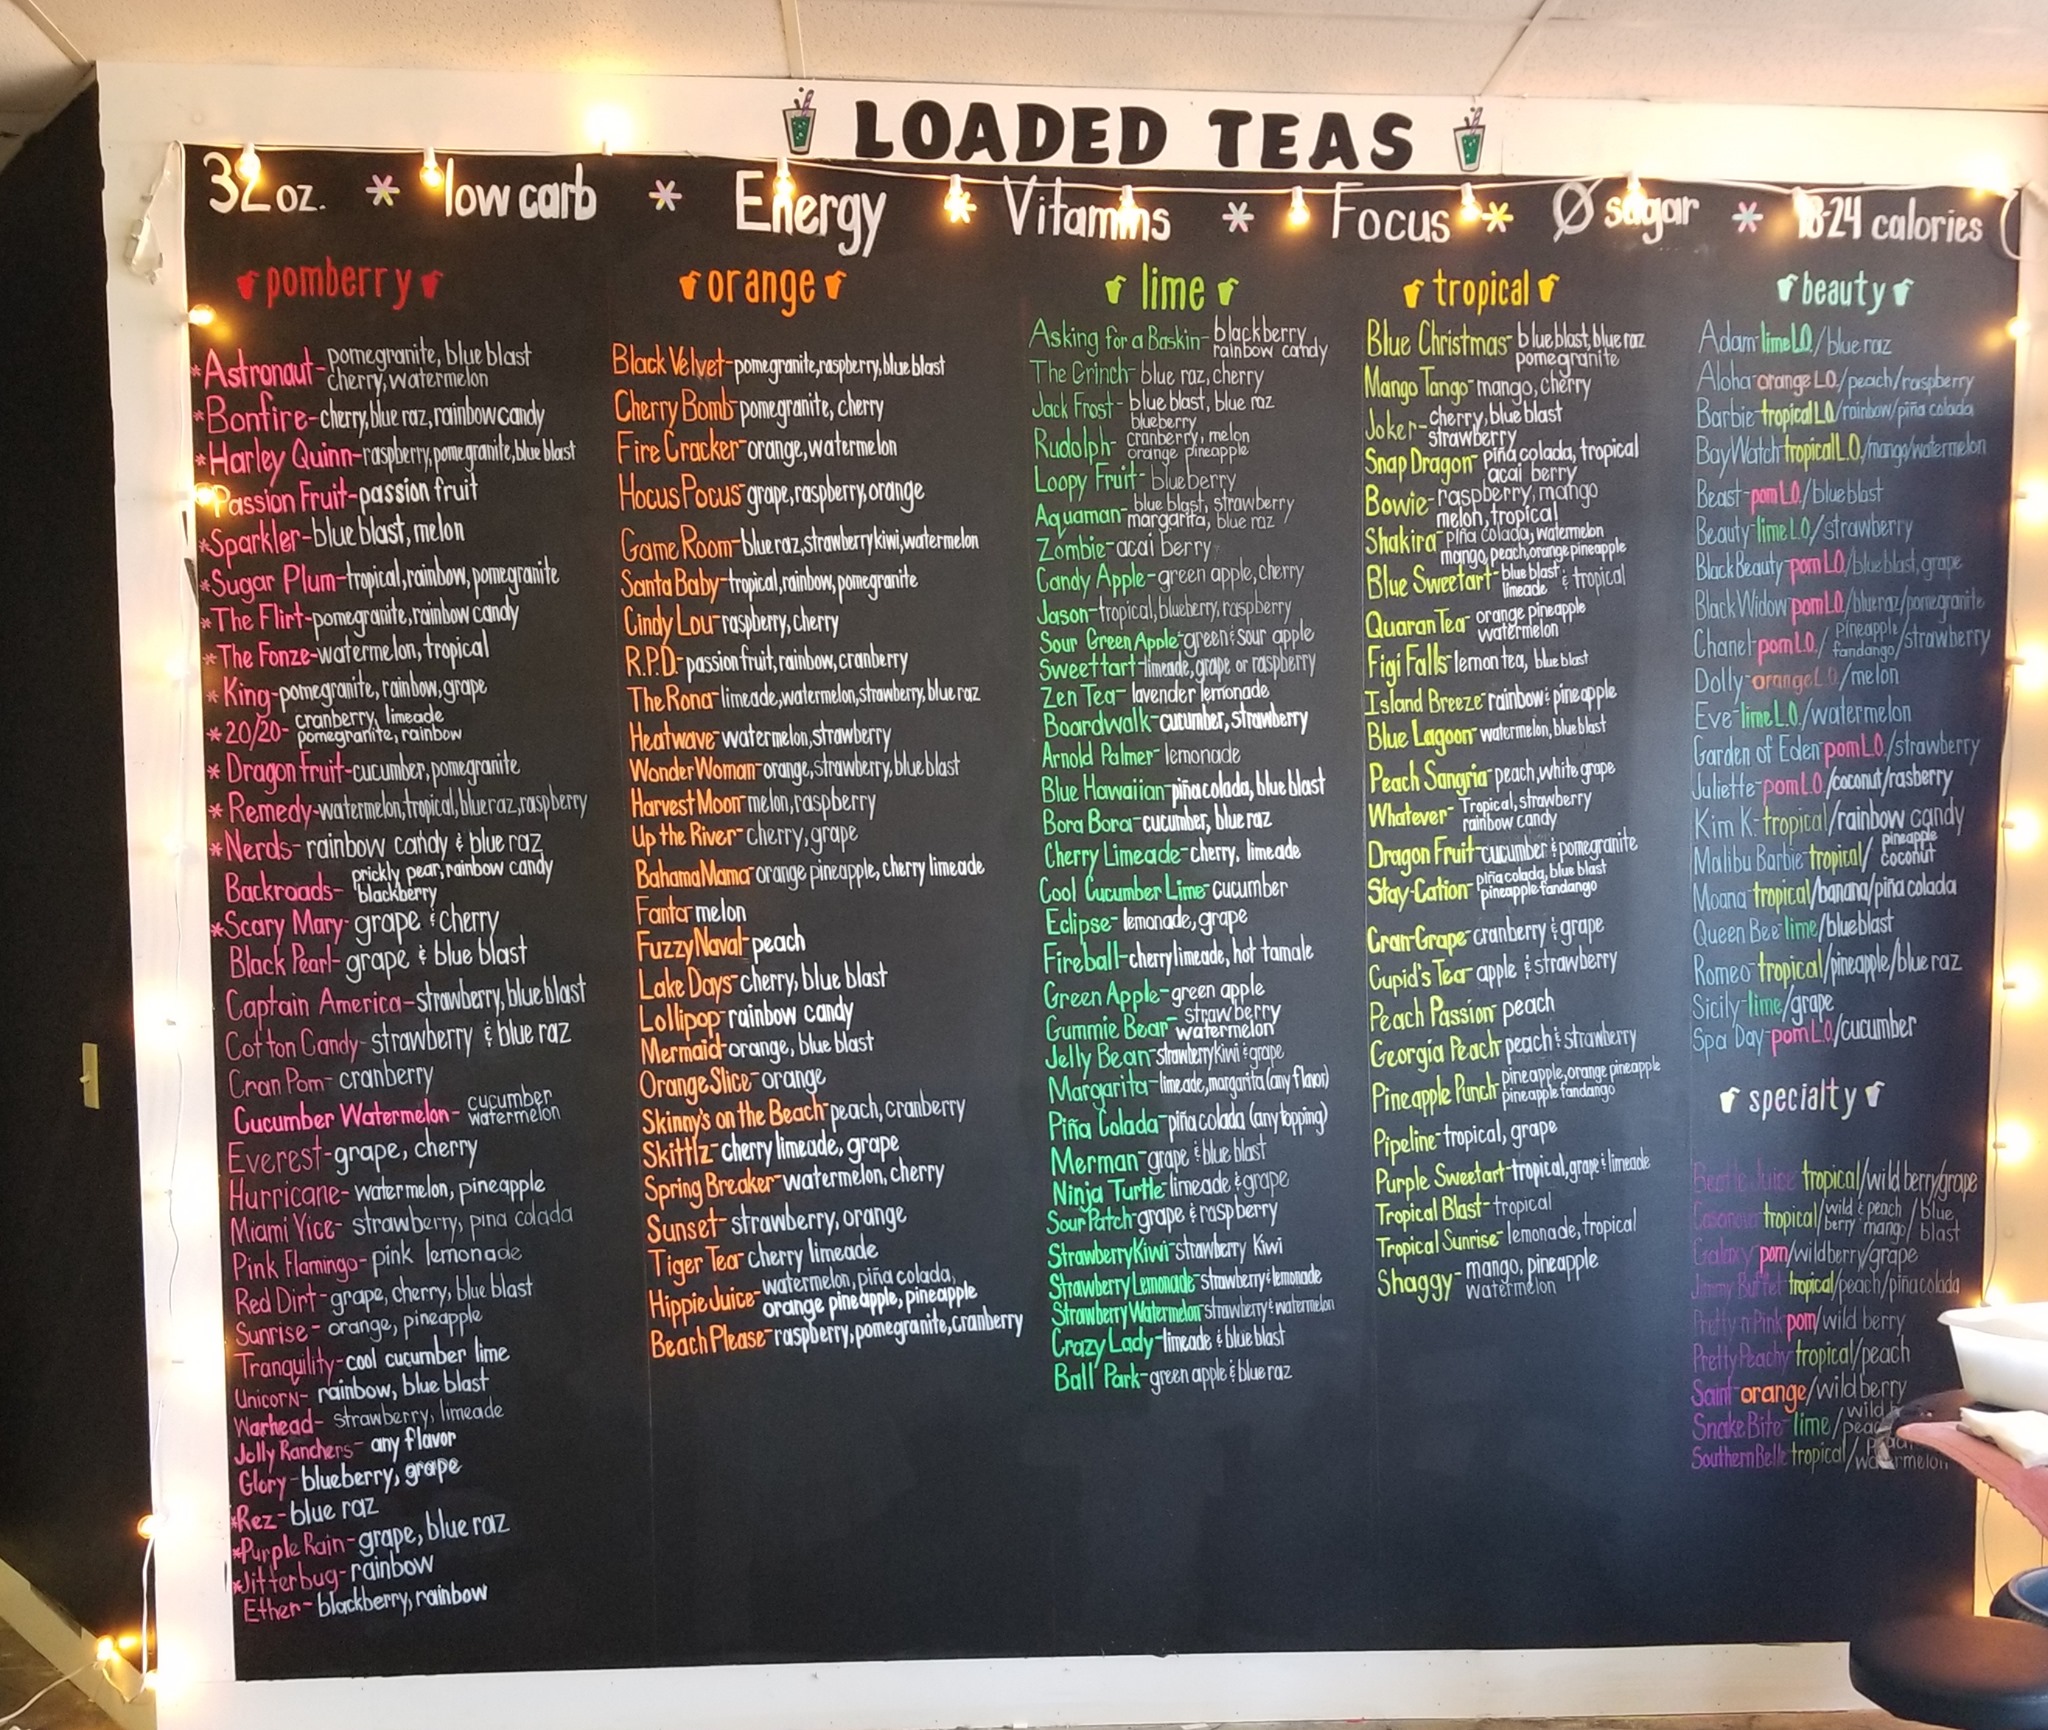 LOADED TEAS
32 oz. * low carb * Energy * Vitamins * Focus * Ø sugar * 18-24 calories
pomberry
*Astronaut- pomegranite, blue blast
cherry, watermelon
*Bonfire-cherry, blue raz, rainbow candy
*Harley Quinn-raspberry, pomegranite, blue blast
*Passion Fruit-passion fruit
*Sparkler-blue blast, melon
*Sugar Plum-tropical, rainbow, pomegranite
*The Flirt-pomegranite, rainbow candy
*The Fonze-watermelon, tropical
*King-pomegranite, rainbow, grape
*20/20- cranberry, limeade
pomegranite, rainbow
*Dragon Fruit-cucumber, pomegranite
*Remedy-watermelon, tropical, blue raz, raspberry
*Nerds- rainbow candy & blue raz
Backroads- prickly pear, rainbow candy
blackberry
*Scary Mary- grape & cherry
Black Pearl- grape & blue blast
Captain America-strawberry, blue blast
Cotton Candy- strawberry & blue raz
Cran Pom- cranberry
Cucumber Watermelon- cucumber
watermelon
Everest-grape, cherry
Hurricane- watermelon, pineapple
Miami Vice- strawberry, pina colada
Pink Flamingo- pink lemonade
Red Dirt- grape, cherry, blue blast
Sunrise- orange, pineapple
Tranquility-cool cucumber lime
Unicorn- rainbow, blue blast
Warhead- strawberry, limeade
Jolly Ranchers- any flavor
Glory-blueberry, grape
*Rez-blue raz
*Purple Rain-grape, blue raz
*Jitterbug-rainbow
Ether-blackberry, rainbow
orange
Black Velvet-pomegranite, raspberry, blue blast
Cherry Bomb-pomegranite, cherry
Fire Cracker-orange, watermelon
Hocus Pocus-grape, raspberry, orange
Game Room-blue raz, strawberry kiwi, watermelon
Santa Baby-tropical, rainbow, pomegranite
Cindy Lou-raspberry, cherry
R.P.D.-passion fruit, rainbow, cranberry
The Rona-limeade, watermelon, strawberry, blue raz
Heatwave-watermelon, strawberry
Wonder Woman-orange, strawberry, blue blast
Harvest Moon-melon, raspberry
Up the River-cherry, grape
Bahama Mama-orange pineapple, cherry limeade
Fanta-melon
Fuzzy Naval-peach
Lake Days-cherry, blue blast
Lollipop-rainbow candy
Mermaid-orange, blue blast
Orange Slice-orange
Skinny's on the Beach-peach, cranberry
Skittlz-cherry limeade, grape
Spring Breaker-watermelon, cherry
Sunset-strawberry, orange
Tiger Tea-cherry limeade
Hippie Juice-watermelon, piña colada,
orange pineapple, pineapple
Beach Please-raspberry, pomegranite, cranberry
lime
Asking for a Baskin- blackberry
rainbow candy
The Grinch- blue raz, cherry
Jack Frost- blue blast, blue raz
blueberry
Rudolph- cranberry, melon
orange pineapple
Loopy Fruit-blueberry
Aquaman- blue blast, strawberry
margarita, blue raz
Zombie-acai berry
Candy Apple-green apple, cherry
Jason-tropical, blueberry, raspberry
Sour Green Apple-green & sour apple
Sweettart-limeade, grape or raspberry
Zen Tea-lavender lemonade
Boardwalk-cucumber, strawberry
Arnold Palmer-lemonade
Blue Hawaiian-piña colada, blue blast
Bora Bora-cucumber, blue raz
Cherry Limeade-cherry, limeade
Cool Cucumber Lime-cucumber
Eclipse-lemonade, grape
Fireball-cherry limeade, hot tamale
Green Apple-green apple
Gummie Bear- strawberry
watermelon
Jelly Bean-strawberry kiwi & grape
Margarita-limeade, margarita (any flavor)
Piña Colada-piña colada (any topping)
Merman-grape & blue blast
Ninja Turtle-limeade & grape
Sour Patch-grape & raspberry
Strawberry Kiwi-strawberry Kiwi
Strawberry Lemonade-strawberry & lemonade
Strawberry Watermelon-strawberry & watermelon
Crazy Lady-limeade & blue blast
Ball Park-green apple & blue raz
tropical
Blue Christmas- blue blast, blue raz
pomegranite
Mango Tango-mango, cherry
Joker- cherry, blue blast
strawberry
Snap Dragon- piña colada, tropical
acai berry
Bowie- raspberry, mango
melon, tropical
Shakira- piña colada, watermelon
mango, peach, orange pineapple
Blue Sweetart- blue blast & tropical
limeade
QuaranTea- orange pineapple
watermelon
Figi Falls-lemon tea, blue blast
Island Breeze-rainbow & pineapple
Blue Lagoon-watermelon, blue blast
Peach Sangria-peach, white grape
Whatever- Tropical, strawberry
rainbow candy
Dragon Fruit-cucumber & pomegranite
Stay-Cation- piña colada, blue blast
pineapple fandango
Cran-Grape-cranberry & grape
Cupid's Tea-apple & strawberry
Peach Passion-peach
Georgia Peach-peach & strawberry
Pineapple Punch- pineapple, orange pineapple
pineapple fandango
Pipeline-tropical, grape
Purple Sweetart-tropical, grape & limeade
Tropical Blast-tropical
Tropical Sunrise-lemonade, tropical
Shaggy- mango, pineapple
watermelon
beauty
Adam-lime L.O./blue raz
Aloha-orange L.O./peach/raspberry
Barbie-tropical L.O./rainbow/piña colada
BayWatch tropical L.O./mango/watermelon
Beast-pom L.O./blue blast
Beauty-lime L.O./strawberry
Black Beauty-pom L.O./blue blast, grape
Black Widow-pom L.O./blue raz/pomegranite
Chanel-pom L.O./ pineapple fandango/strawberry
Dolly-orange L.O./melon
Eve-lime L.O./watermelon
Garden of Eden-pom L.O./strawberry
Juliette-pom L.O./coconut/rasberry
Kim K-tropical/rainbow candy
Malibu Barbie-tropical/ pineapple
coconut
Moana-tropical/banana/piña colada
Queen Bee-lime/blueblast
Romeo-tropical/pineapple/blue raz
Sicily-lime/grape
Spa Day-pom L.O./cucumber
specialty
Beetle Juice tropical/wild berry/grape
Casanova tropical/ wild berry & peach mango/ blue blast
Galaxy pom/wildberry/grape
Jimmy Buffet tropical/peach/piña colada
Pretty n Pink pom/wild berry
Pretty Peachy tropical/peach
Saint-orange/wild berry
Snake Bite-lime/ wild
Southern Belle tropical/